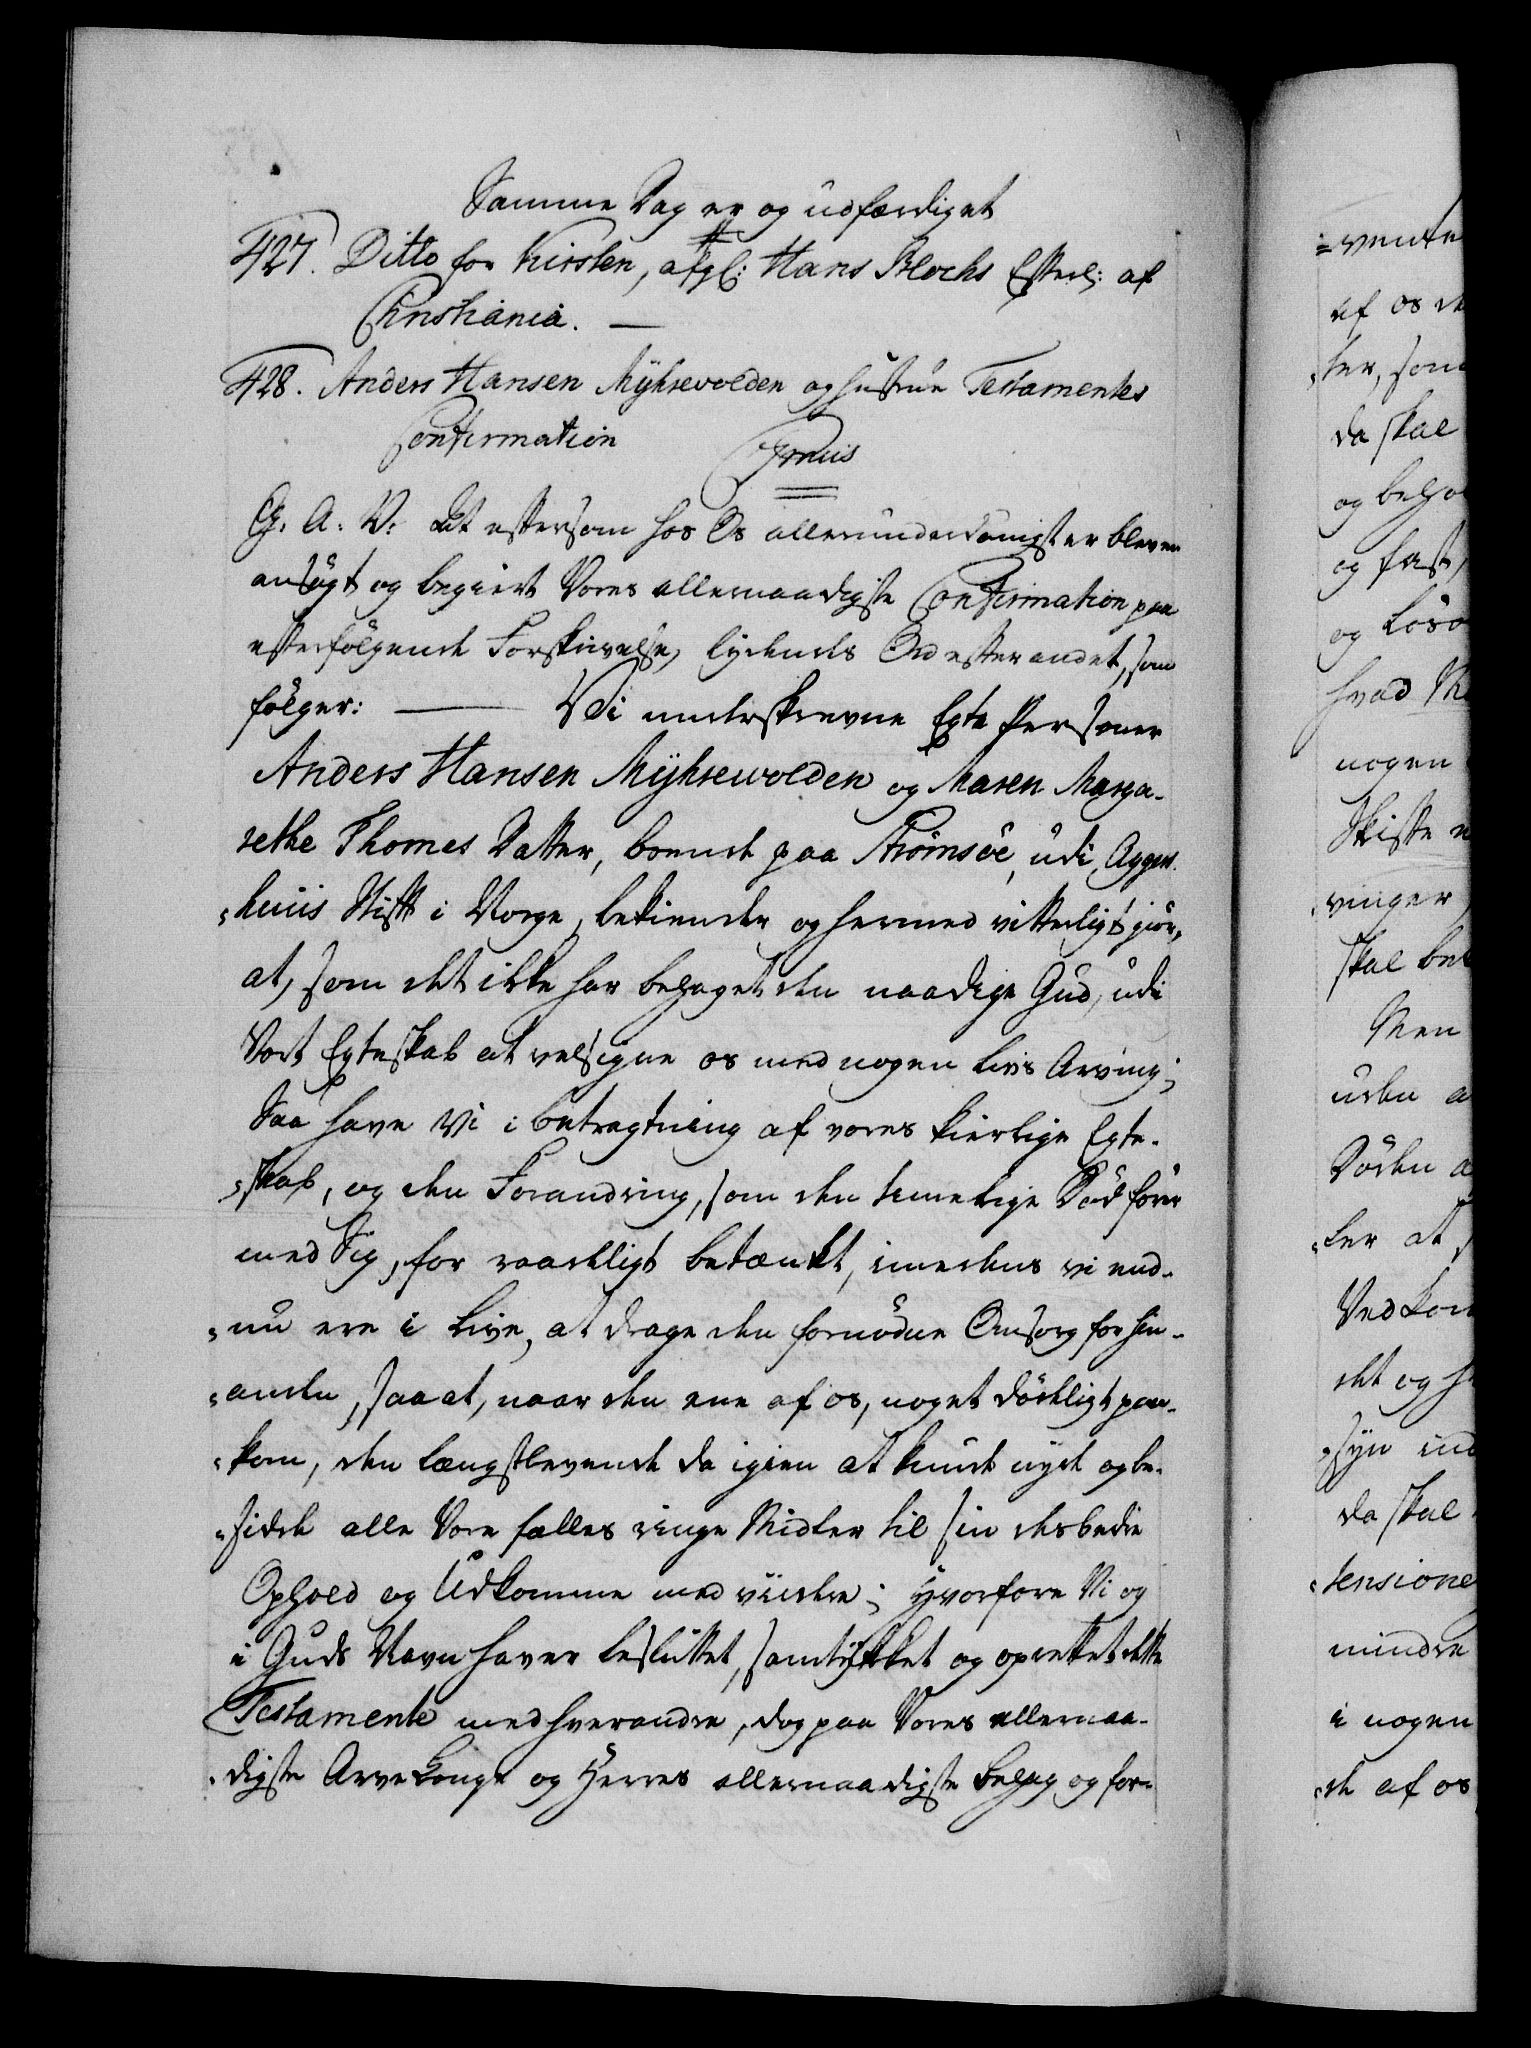 Samme Dag er og udfærdiget
427. Ditto for Kirsten, afgl: Hans Blochs Efterl: af
Christiania. —
428. Anders Hansen Myhrevolden og Hustrue Testamentes
Confirmation
G. A. V: at eftersom hos Os allerunderdanigst er bleven
ansøgt og begiert Vores allernaadigste Confirmation paa
efterfølgende Forskrivelse, lydende Ord efter andet, som
følger: — Vi underskrevne Egte Personer
Anders Hansen Myhrewolden og Maren Marga-
rethe Thomes Datter, boende paa Strømsøe, udi Agger-
huus Stift i Norge, bekiender og hermed vitterligt giør,
at, som det ikke har behaget den naadige Gud, udi
Vort Egteskab at velsigne os med nogen Livs Arving;
Saa have Vi i betragtning af vores kierlige Egte-
skab, og den Forandring, som den timelige Død fører
med Sig, for raadeligt betænkt, imedens vi end-
nu ere i Live, at drage den fornødne Omsorg for hin-
anden, saa at, naar den ene af os, noget dødeligt paa-
kom, den længstlevende da igien at kunde nyde og be-
sidde alle Vore fælles ringe Midler til sin desbedre
Ophold og Udkomme med videre; Hvorfore Vi og
i Guds Navn haver besluttet, samtykket og oprettet dette
Testamente med hverandre, dog paa Vores allernaa-
digste Arve Konge og Herres allernaadigste behag og for-
vente
af os de
ter, som
da skal
og beho
og fast,
og Løsø
hvad
nogen
Skifte
vinger
skal be
Men
uden a
Døden a
ler at
Vedkom
det og
syn
da skal
tensione
mindre
i nogen
de af os